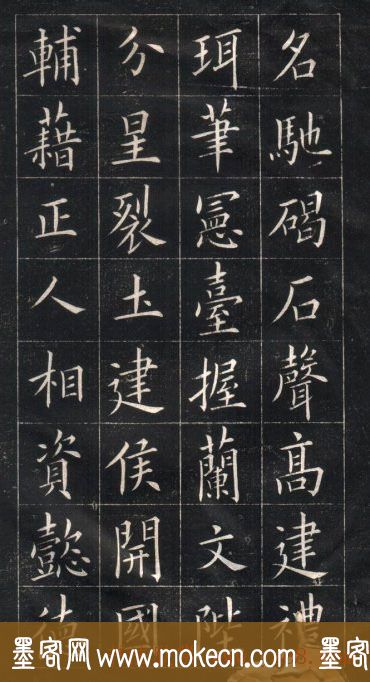 名馳碣石聲高建禮
珥筆憲臺握蘭文陛
分星裂土建侯開國
輔藉正人相資懿德
墨客网 www.mokecn.com 墨客网